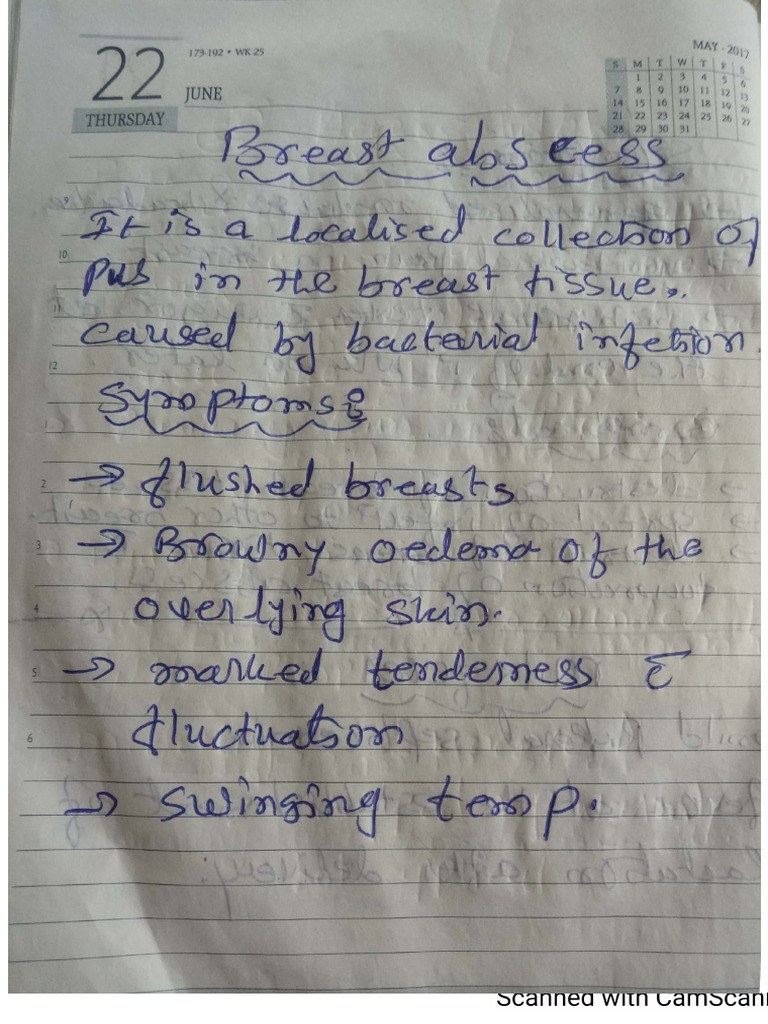 22
173-192 • WK 25
JUNE
THURSDAY
MAY - 2017
S M T W T F S
1 2 3 4 5 6
7 8 9 10 11 12 13
14 15 16 17 18 19 20
21 22 23 24 25 26 27
28 29 30 31
Breast abscess
9
It is a localised collection of
10
pus in the breast tissue.
11
caused by bacterial infetion.
12
Symptoms:
1
2 → flushed breasts
3 → Browny oedema of the
4 overlying skin.
5 → marked tenderness c̄
fluctuation
6
→ swinging temp.
Scanned with CamScann